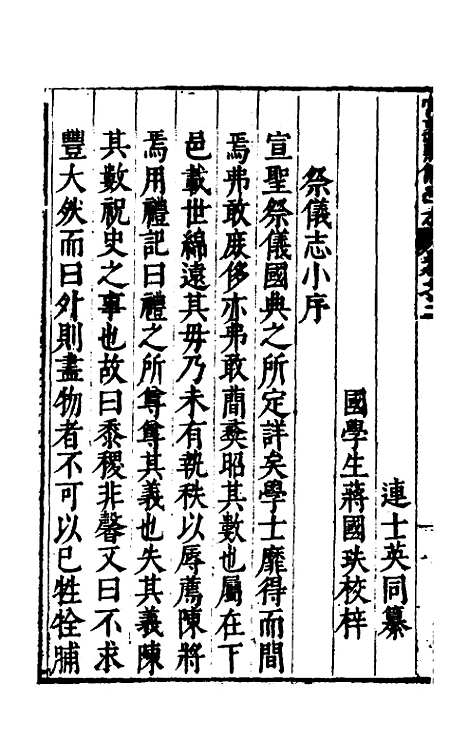 連士英同纂
國學生蔣國玞校梓
祭儀志小序
宣聖祭儀國典之所定詳矣學士靡得而間
焉弗敢庻侈亦弗敢蕳䙝昭其數也屬在下
邑載世綿遠其毋乃未有執秩以辱薦陳將
焉用禮記曰禮之所尊尊其義也失其義陳
其數祝史之事也故曰黍稷非馨又曰不求
豐大然而曰外則盡物者不可以已牲牷脯